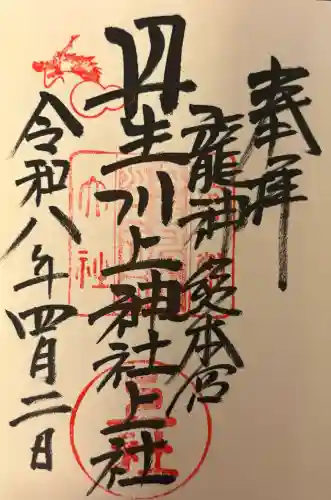 奉拝
龍神総本宮
丹生川上神社上社
令和八年四月二日